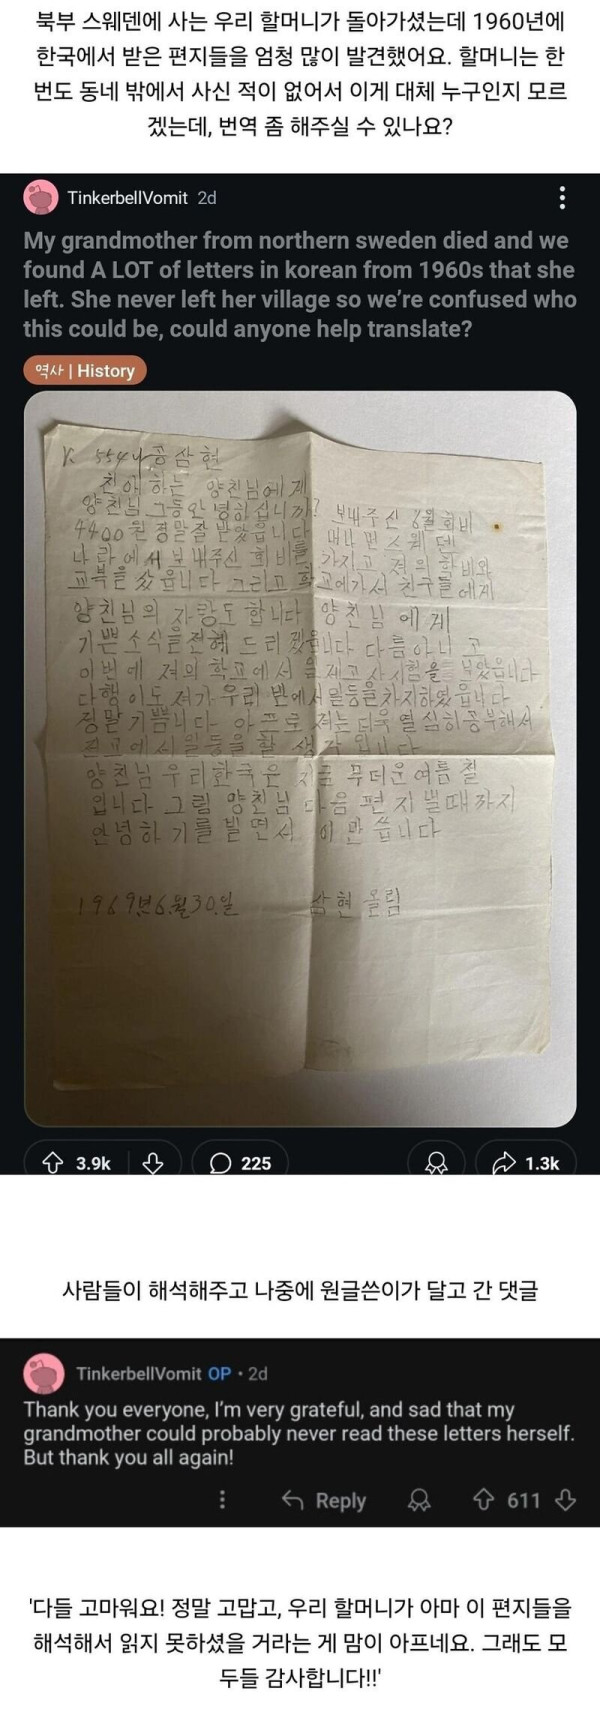 북부 스웨덴에 사는 우리 할머니가 돌아가셨는데 1960년에
한국에서 받은 편지들을 엄청 많이 발견했어요. 할머니는 한
번도 동네 밖에서 사신 적이 없어서 이게 대체 누구인지 모르
겠는데, 번역 좀 해주실 수 있나요?
TinkerbellVomit 2d
My grandmother from northern sweden died and we
found A LOT of letters in korean from 1960s that she
left. She never left her village so we’re confused who
this could be, could anyone help translate?
역사 | History
K 5544 공삼현
친아하는 양친님에게
양친님 그동안 녕하십니까? 보내주신 6월 회비
4400원 정말잘 받았읍니다 머나먼 스웨덴
나랑에서 보내주신 회비를 가지고 저의 학비와
교복을 샀읍니다 그리고 학교에가서 친구들에게
양친님의 자랑도 합니다 양친님에게
기쁜소식을전해 드리겠읍니다 다름아니고
이번에 저의 학교에서 일제고사시험을 보았읍니다
다행이도 저가 우리 반에서 일등을차지하였읍니다
정말기쁩니다 아프로 저는 더욱 열심히공부해서
전교에서 일등을 할 생각입니다
양친님 우리한국은 지금 무더운여름철
입니다 그럼 양친님 다음 편지낼때까지
안녕하기를 빌면서 이만 씁니다
1969년6월30일 삼현 올림
3.9k 225 1.3k
사람들이 해석해주고 나중에 원글쓴이가 달고 간 댓글
TinkerbellVomit OP • 2d
Thank you everyone, I’m very grateful, and sad that my
grandmother could probably never read these letters herself.
But thank you all again!
Reply 611
'다들 고마워요! 정말 고맙고, 우리 할머니가 아마 이 편지들을
해석해서 읽지 못하셨을 거라는 게 맘이 아프네요. 그래도 모
두들 감사합니다!!'